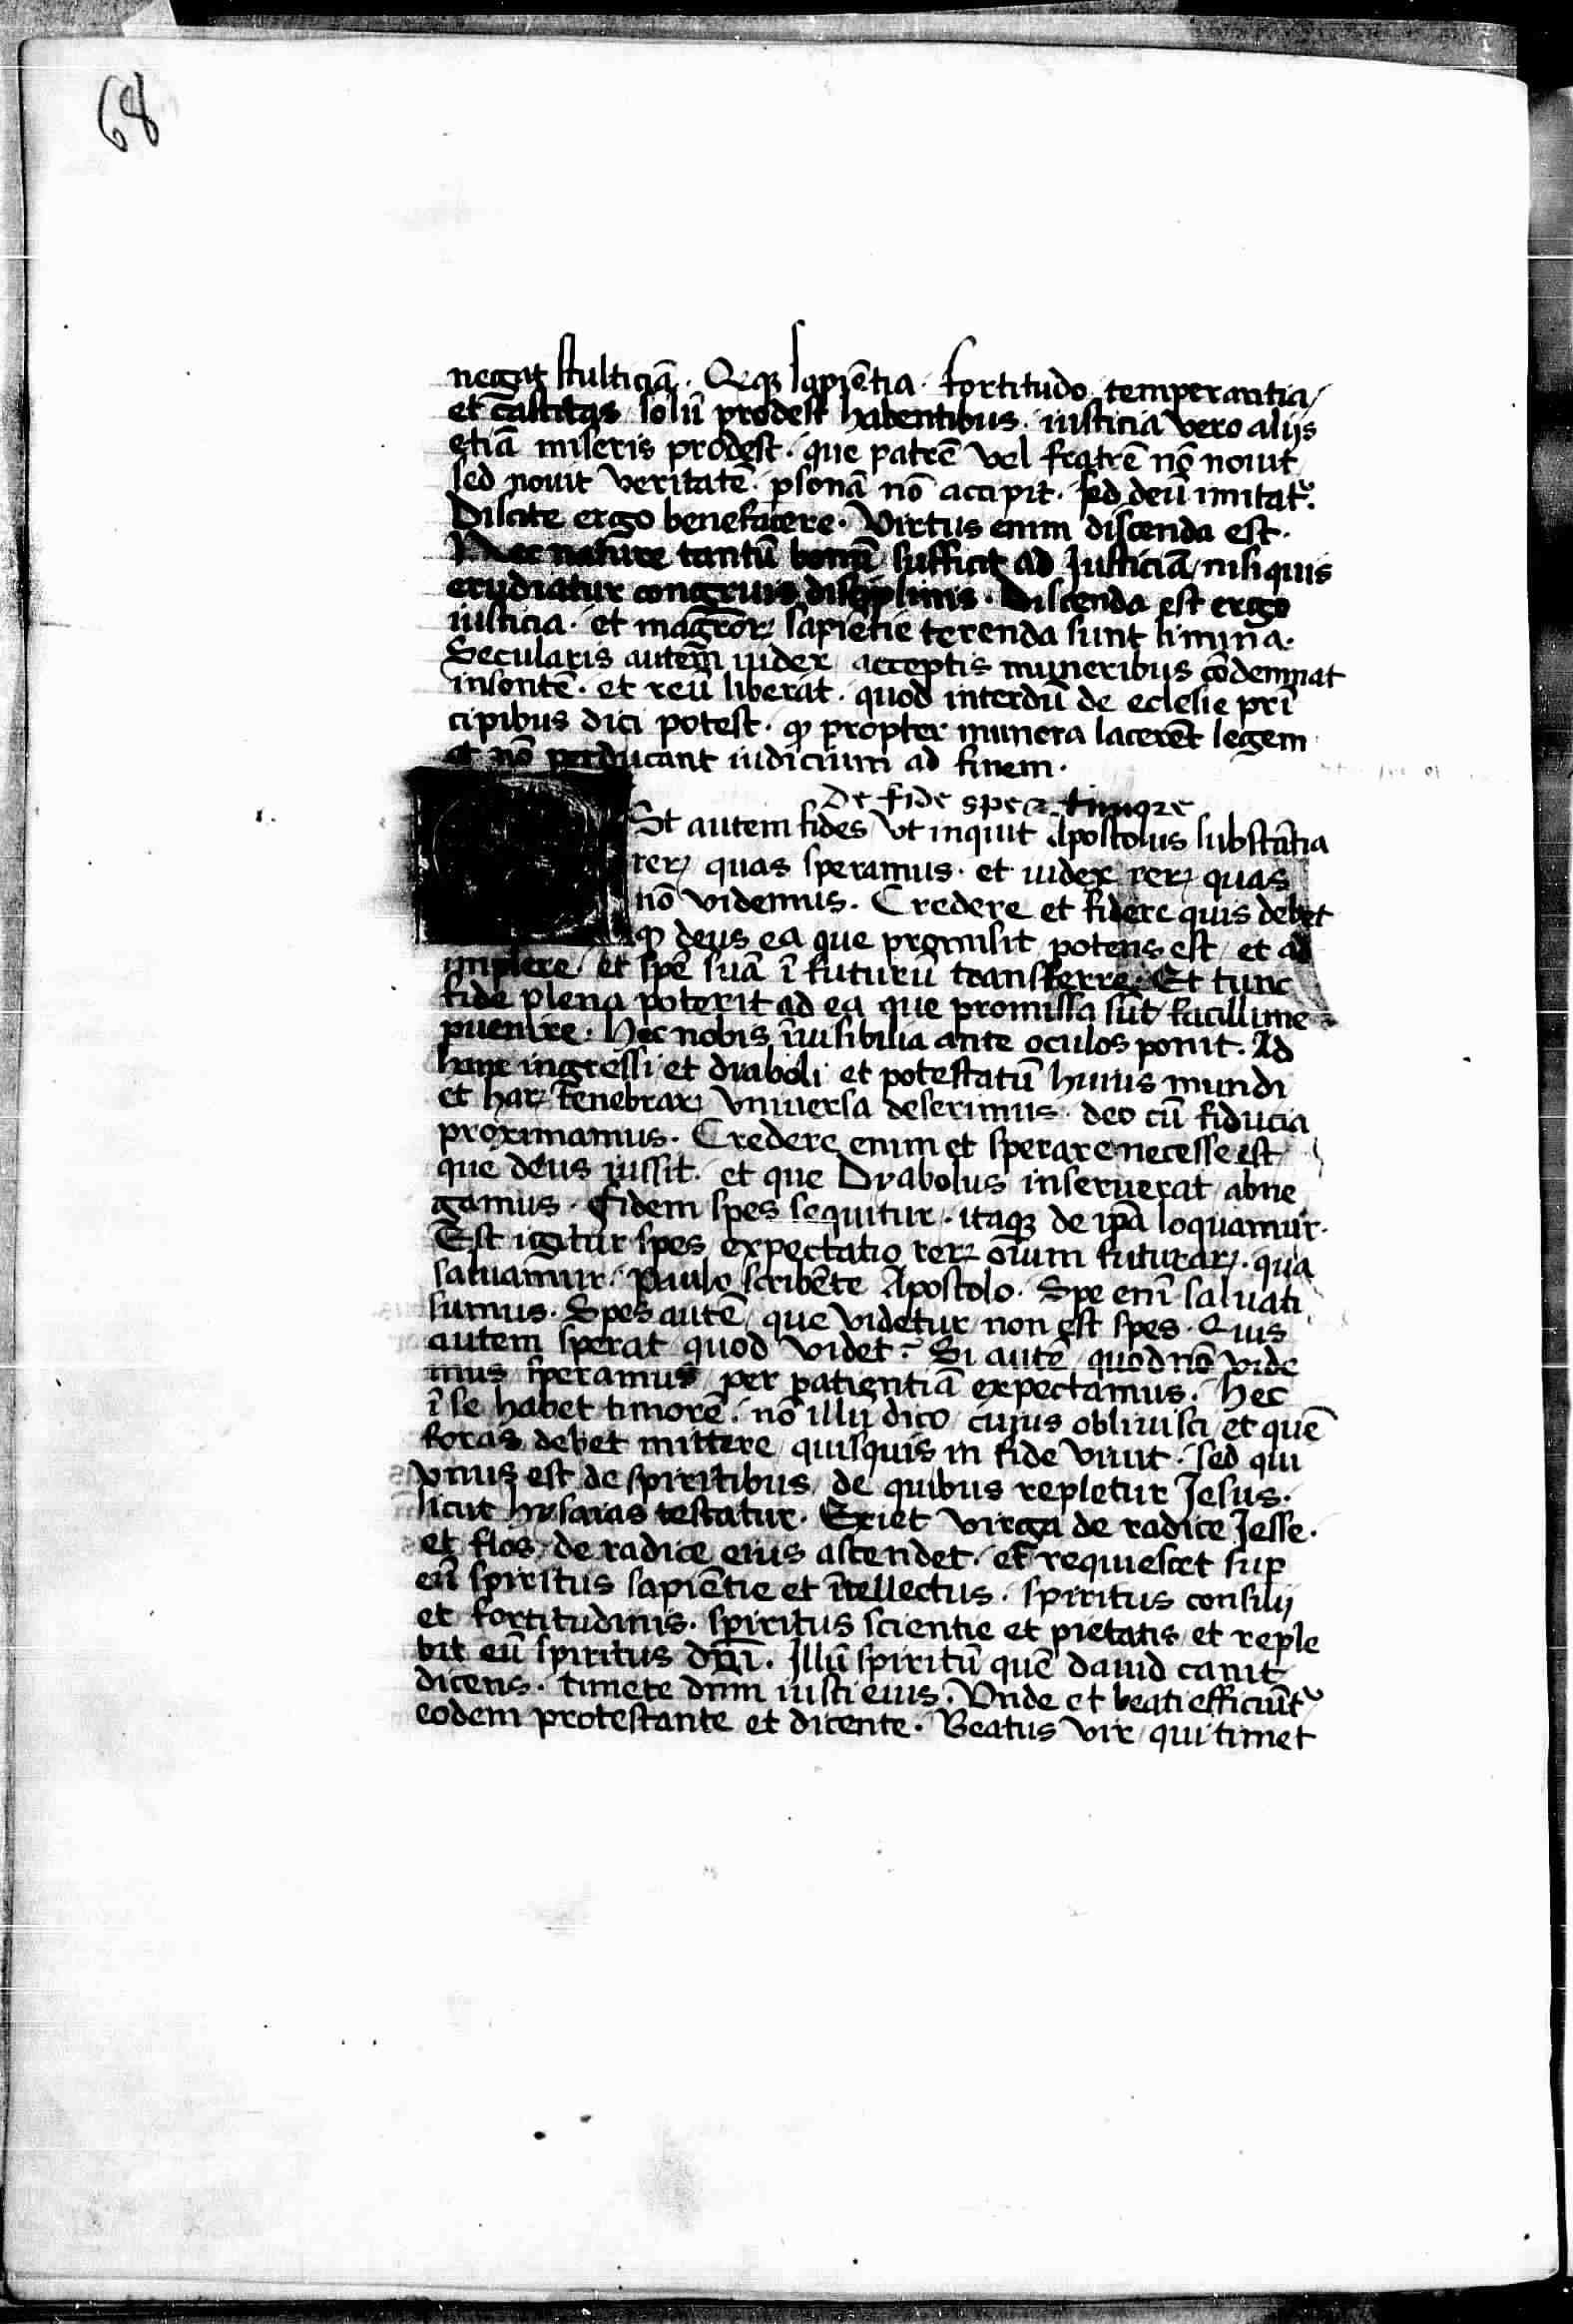 68
negat stulticiā. Qeqꝫ sapiētia. fortitudo temperantia/
et castitas solū prodest habentibus. iusticia vero alijs
etiā miseris prodest. que patrē vel fratrē nō nouit
sed nouit veritatē. ꝑsonā nō accipit. sed deū imitatᷣ.
Discite ergo benefacere. Virtus enim discenda est.
Nec nature tantū bonū sufficit ad Justiciā/ nisi quis
erudiatur congruis disciplinis. Discenda est ergo
iusticia. et magr̄oꝝ sapiētie terenda sunt limina.
Secularis autem̄ iudex acceptis muneribus cōdemnat
insontē. et reū liberat. quod interdū de eclesie prī
cipibus dici potest. ꝙ propter munera lacerēt legem
et nō perducant iudicium ad finem.
De fide spe ⁊ timore
St autem fides vt inquit Apostolus substātia
reꝝ quas speramus. et iudex reꝝ quas
nō videmus. Credere et fidere quis debet
ꝙ deus ea que promisit potens est/ et ad
implere/ et spē suā ī futurū transferre. Et tunc
fide plena poterit ad ea que promissa sūt/ facillime
ꝑuenire. Hec nobis īuisibilia ante oculos ponit. Ad
hanc ingressi et diaboli et potestatū huius mundi
et haꝝ tenebraꝝ vniuersa deserimus. deo cū fiducia
proximamus. Credere enim et sperare necesse est
que deus iussit. et que Dyabolus inseruerat abne
gamus. Fidem spes sequitur. itaqꝫ de ip̄a loquamur.
Est igitur spes expectatio reꝝ oīum futuraꝝ. qua
saluamur. Paulo scribēte Apostolo. Spe enī saluati
sumus. Spes autē/ que videtur non est spes. Quis
autem sperat quod videt? Si autē quod nō vide
mus speramus/ per patientiā expectamus. Hec
ī se habet timorē. nō illū dico/ cuius obliuisci et quē
foras debet mittere quisquis in fide viuit. sed qui
vnus est de spiritibus/ de quibus repletur Jesus.
sicut hysaias testatur. Exiet virga de radice Jesse.
et flos de radice eius ascendet. et requiescet suꝑ
eū spiritus sapiētie et ītellectus. spiritus consilij
et fortitudinis. spiritus scientie et pietatis/ et reple
bit eū spiritus dn̄i. Illū spiritū quē dauid canit
dicens. timete dn̄m iusti eius. Vnde et beati efficiūtᷣ
eodem protestante et dicente. Beatus vir/ qui timet